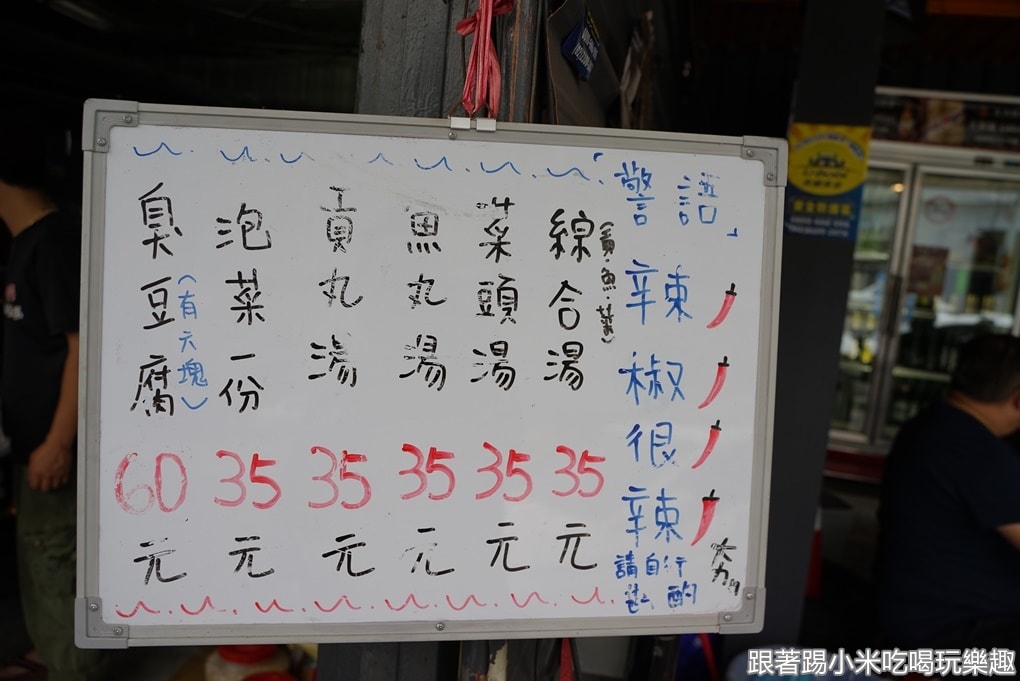 「警語」
辣椒很辣
請自行斟酌
綜合湯
(貢.魚.菜)
35元
菜頭湯
35元
魚丸湯
35元
貢丸湯
35元
泡菜一份
35元
臭豆腐
(有六塊)
60元
跟著踢小米吃喝玩樂趣